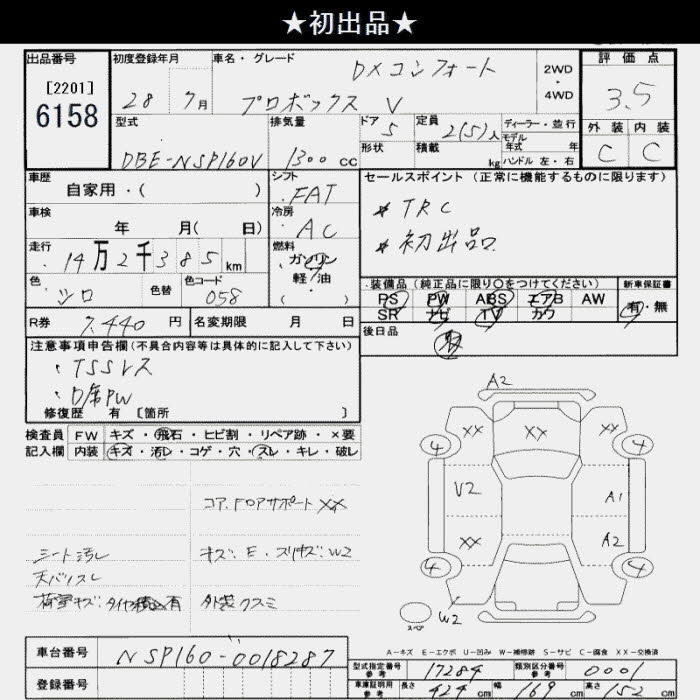 ★初出品★
出品番号
[2201]
6158
初度登録年月
28 7月
車名・グレード
DXコンフォート
プロボックス V
2WD
・
4WD
評価点
3.5
外装 内装
C C
型式
DBE-NSP160V
排気量
1300 cc
ドア
5
形状
定員
2(5)人
積載
kg
ディーラー・並行
モデル
年式 年
ハンドル 左・右
車歴
自家用・( )
シフト
FAT
車検
年 月( 日)
冷房
AC
走行
14万2千385km
燃料
ガソリン
軽油
・( )
色
シロ
色替
色コード
058
R券
7,440 円
名変期限 月 日
セールスポイント(正常に機能するものに限ります)
* TRC
* 初出品
装備品(純正品に限り○をつけてください)
PS PW ABS エアB AW
SR ナビ TV カワ
新車保証書
有・無
後日品
取
注意事項申告欄(不具合内容等は具体的に記入して下さい)
・TSSレス
・D席PW
修復歴 有 [箇所 ]
検査員
記入欄
FW キズ・飛石・ヒビ割・リペア跡・×要
内装 キズ・汚レ・コゲ・穴・スレ・キレ・破レ
コア、Fロアサポート XX
シート汚レ
キズ・E・スリキズ・W2
天バリスレ
荷室キズ・タイヤ積込有
外装クスミ
A2
XX XX XX
4 4
V2 A1
XX A2
4 4
W2
スペア
A-キズ E-エクボ U-凹み W-補修跡 S-サビ C-腐食 XX-交換済
車台番号
NSP160-0018287
登録番号
型式指定番号
参考
17284
類別区分番号
参考
0001
車庫証明用
参考
長さ 424 cm 幅 169 cm 高さ 152 cm